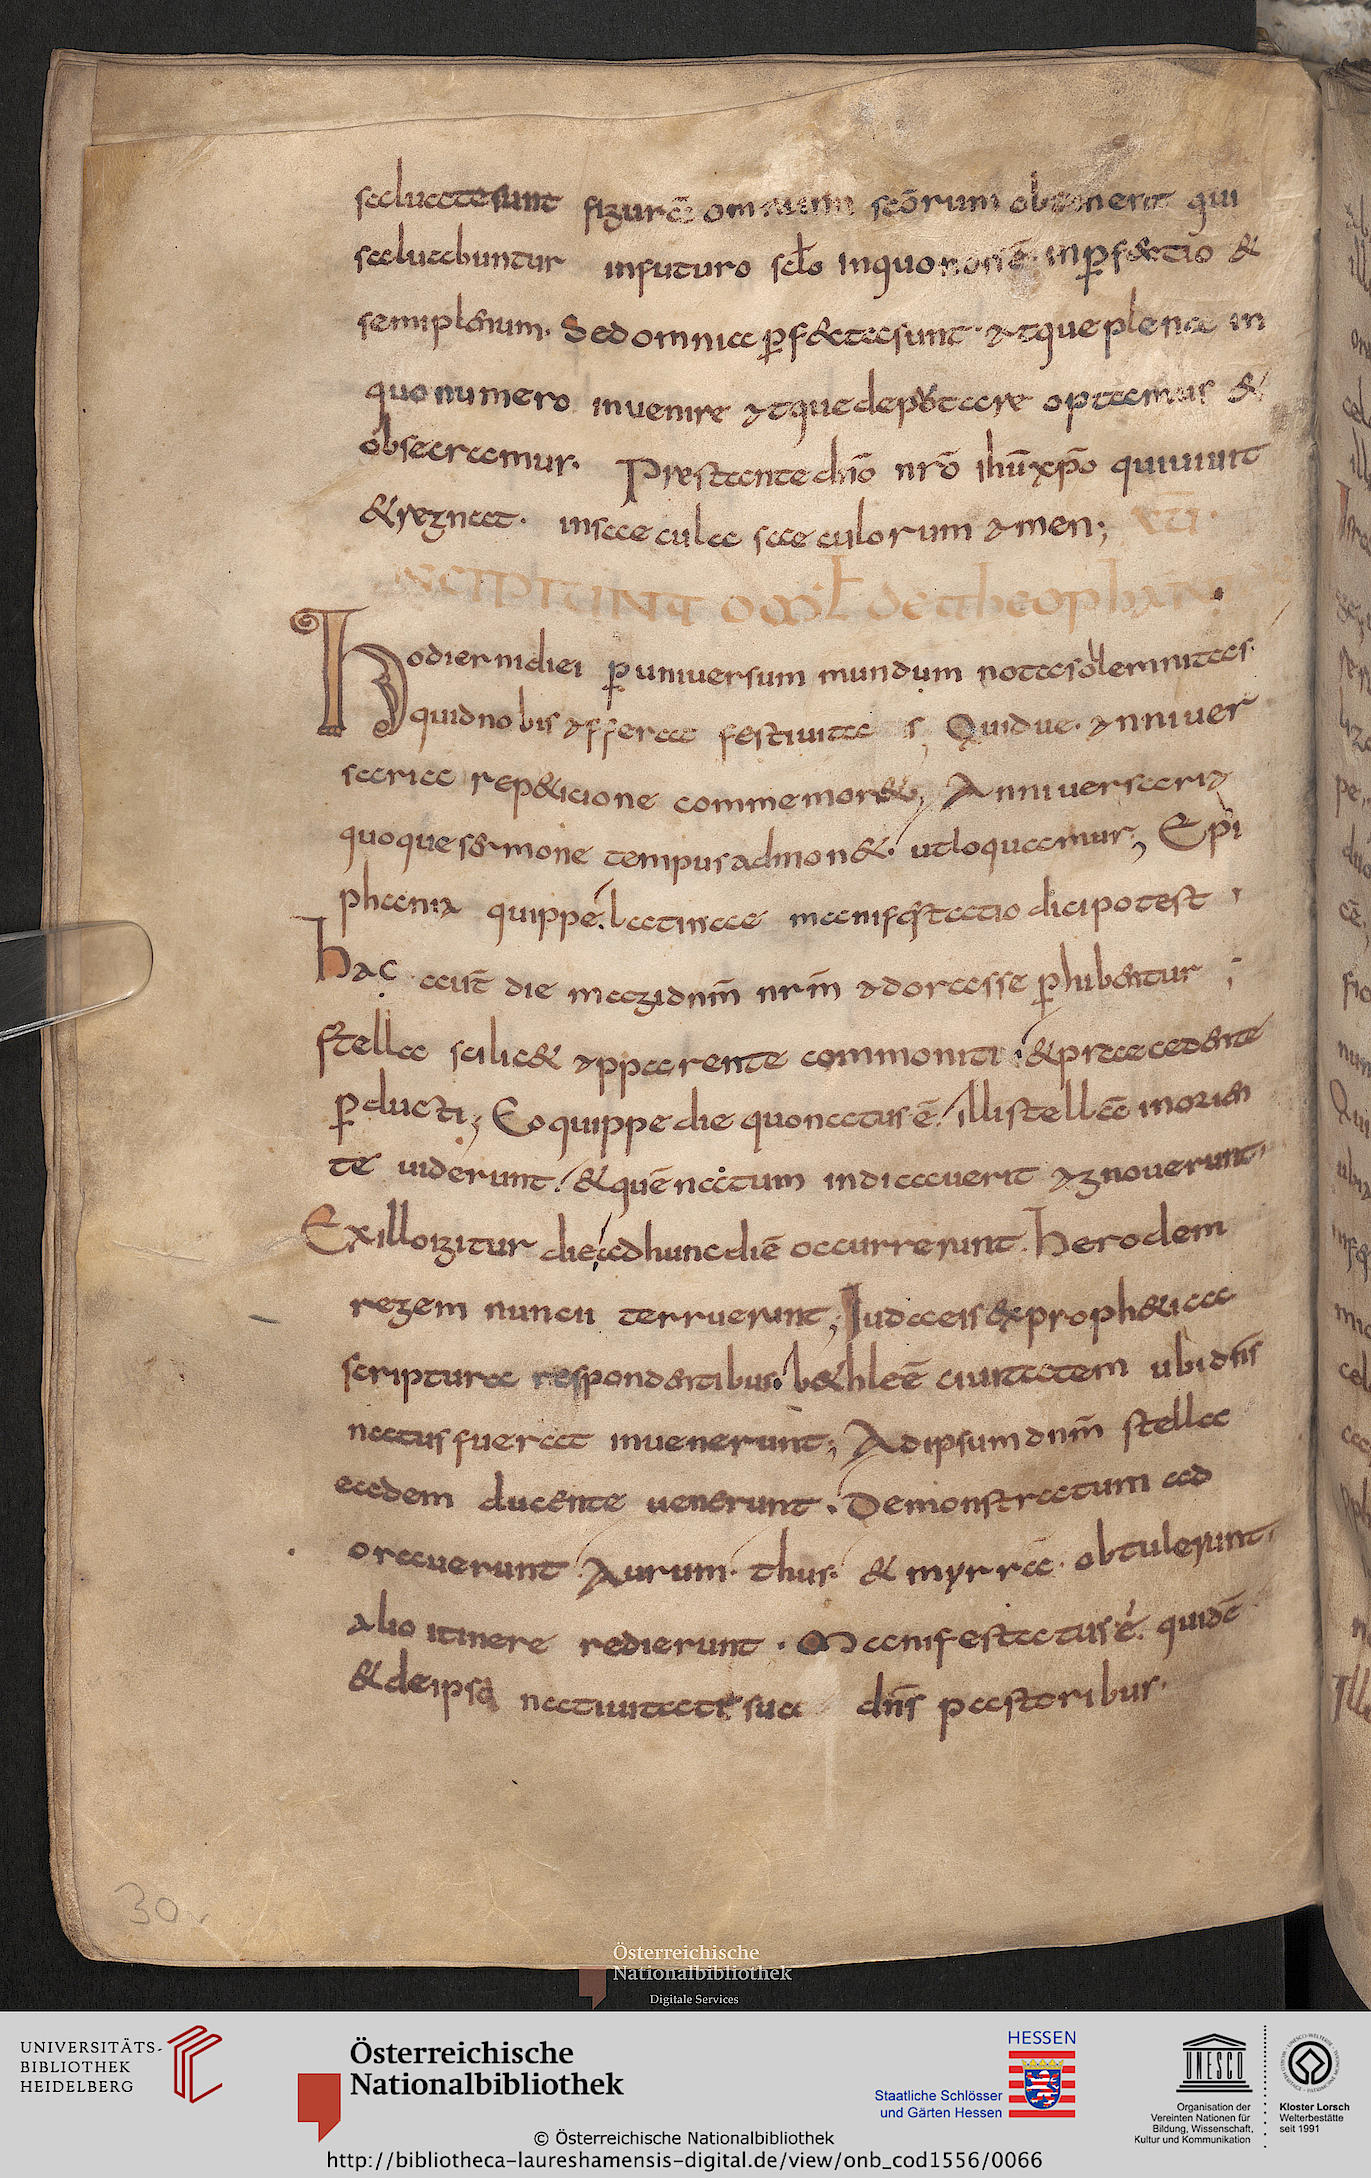 saluatesunt figurā omnium scōrum obtinent qui
saluabuntur infuturo scło inquo nonē inp̲f&tio &
semiplenum. Sed omnia p̲f&tasunt atqueplena in
quo numero inuenire atquedeputare optamus &
obsecramur. Prestante dnō nrō ihūxp̄o quiuiuit
&regnat. insaecula saeculorum amen;
INCIPIUNT omēł de theophania
Hodiernidiei p̲uniuersum mundum notasolemnitas.
quidnobis afferat festiuitas, Quidue. anniuer
saria rep&icione commemor&ur, Anniuersaria
quoquesermone tempusadmon&. utloquamur, Epi
phania quippe. latinae manifestatio dicipotest,
hac aut̄ die magi dnm̄ nrm̄ adorasse p̲hibentur;
stella scilic& apparente commoniti. &praecedente
p̲ducti; Eo quippe die quonatusē. illistellā inorien
te uiderunt. &quēnatum indicauerit agnouerunt,
Exilloigitur die adhuncdiē occurrerunt. herodem
regem nuncii terruerunt; Iudaeis exproph&ica
scriptura respondentibus. b&hleē ciuitatem ubi dnīs
natus fuerat inuenerunt; Adipsum dnm̄ stella
eadem ducente uenerunt. Demonstratum ad
orauerunt Aurum. thus. & myrrā. obtulerunt.
alio itinere redierunt. Manifestatus ē. quidē
&deipsa natiuitate sua dnīs pastoribus.
30v
Österreichische
Nationalbibliothek
Digitale Services
UNIVERSITÄTS-
BIBLIOTHEK
HEIDELBERG
Österreichische
Nationalbibliothek
HESSEN
Staatliche Schlösser
und Gärten Hessen
UNESCO
Organisation der
Vereinten Nationen für
Bildung, Wissenschaft,
Kultur und Kommunikation
Kloster Lorsch
Welterbestätte
seit 1991
© Österreichische Nationalbibliothek
http://bibliotheca-laureshamensis-digital.de/view/onb_cod1556/0066